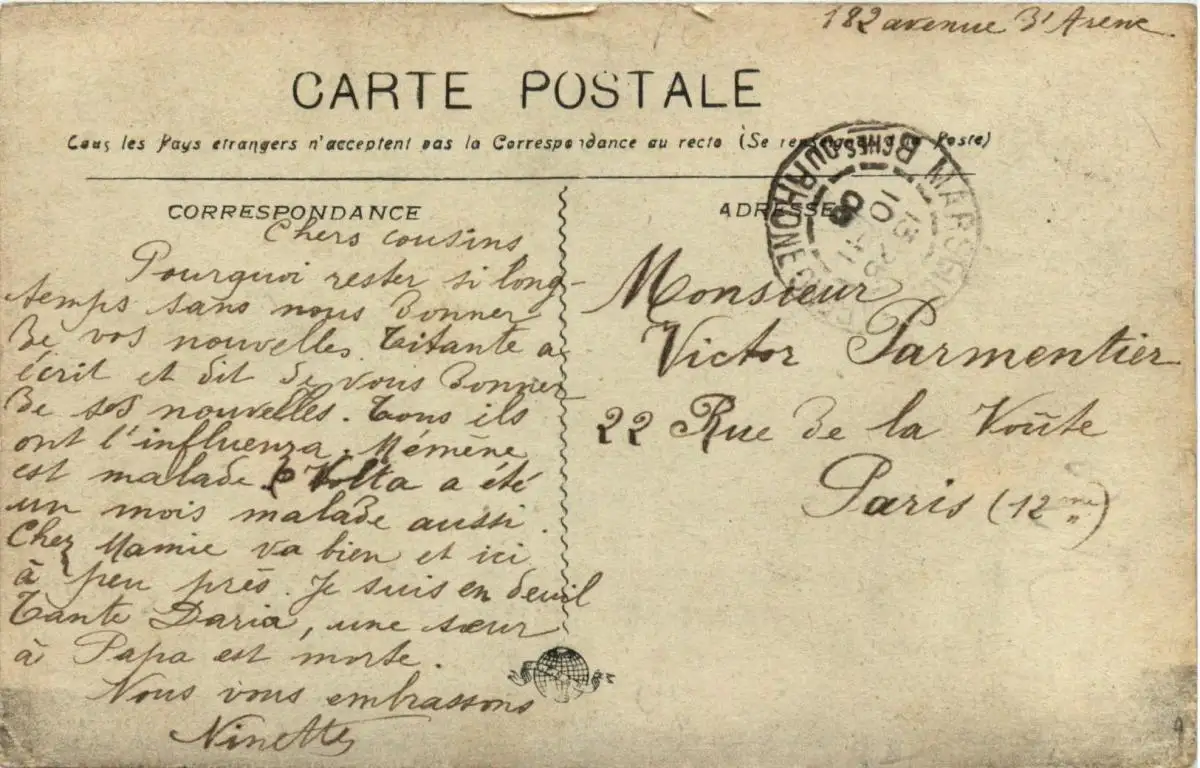 182 avenue d'Arenc
CARTE POSTALE
Tous les Pays étrangers n'acceptent pas la Correspondance au recto (Se renseigner à la Poste)
CORRESPONDANCE
Chers cousins
Pourquoi rester si long-
temps sans nous donner
de vos nouvelles. Titante a
écrit et dit de vous donner
de ses nouvelles. Tous ils
ont l'influenza. Mémène
est malade. Volta a été
un mois malade aussi.
Chez Mamie va bien et ici
à peu près. Je suis en deuil
Tante Daria, une sœur
à Papa est morte.
Nous vous embrassons
Ninette
ADRESSE
MARSEILLE
BCHES DU RHONE
Monsieur
Victor Parmentier
22 Rue de la Voûte
Paris (12eme)